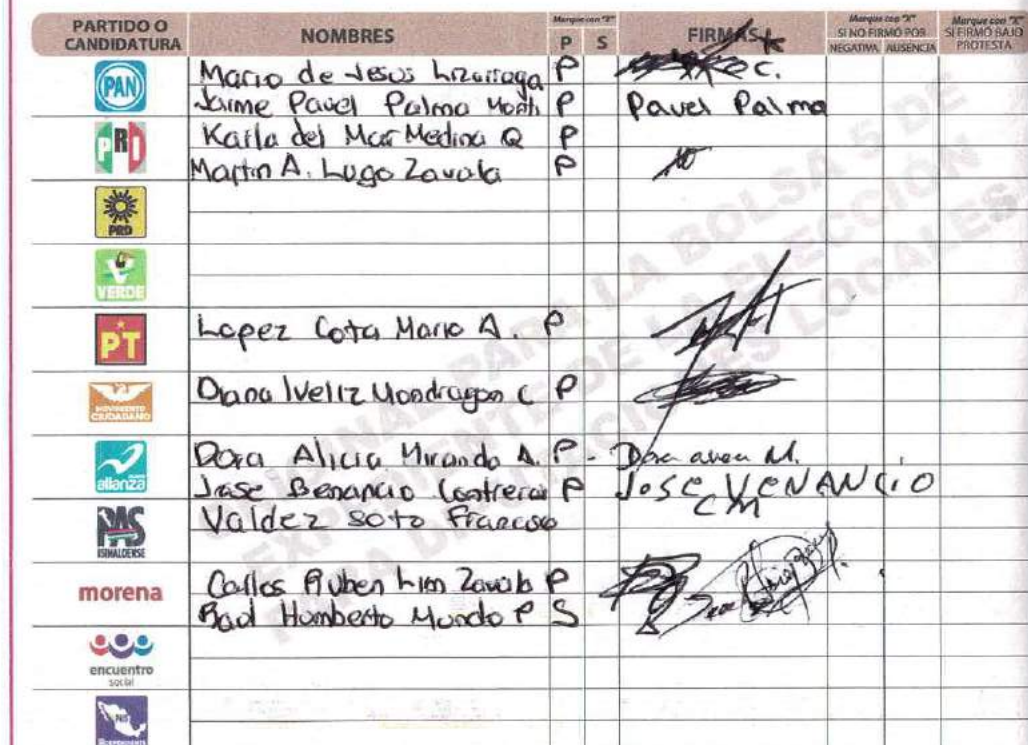 PARTIDO O CANDIDATURA NOMBRES Marque con "X" P S FIRMAS Marque con "X" SI NO FIRMÓ POR NEGATIVA AUSENCIA Marque con "X" SI FIRMÓ BAJO PROTESTA
PAN Mario de Jesus Lizarraga P C.
Jaime Pavel Palma P Pavel Palma
PRI Karla del Mar Medina Q P
Martin A. Lugo Zavala P
PRD
VERDE
PT Lopez Cota Mario A. P
MOVIMIENTO CIUDADANO Diana Iveliz Mondragon C P
alianza Dora Alicia Miranda A. P - M.
Jose Benancio Contreras P JOSE VENANCIO CM
PAS SINALOENSE Valdez Soto Francisco
morena Carlos Ruben Lim Zavala P
Humberto Mundo P S
encuentro social
INDEPENDIENTE
ORIGINAL PARA LA BOLSA 5 DE
EXPEDIENTE DE LA ELECCIÓN
PARA DIPUTACIONES LOCALES